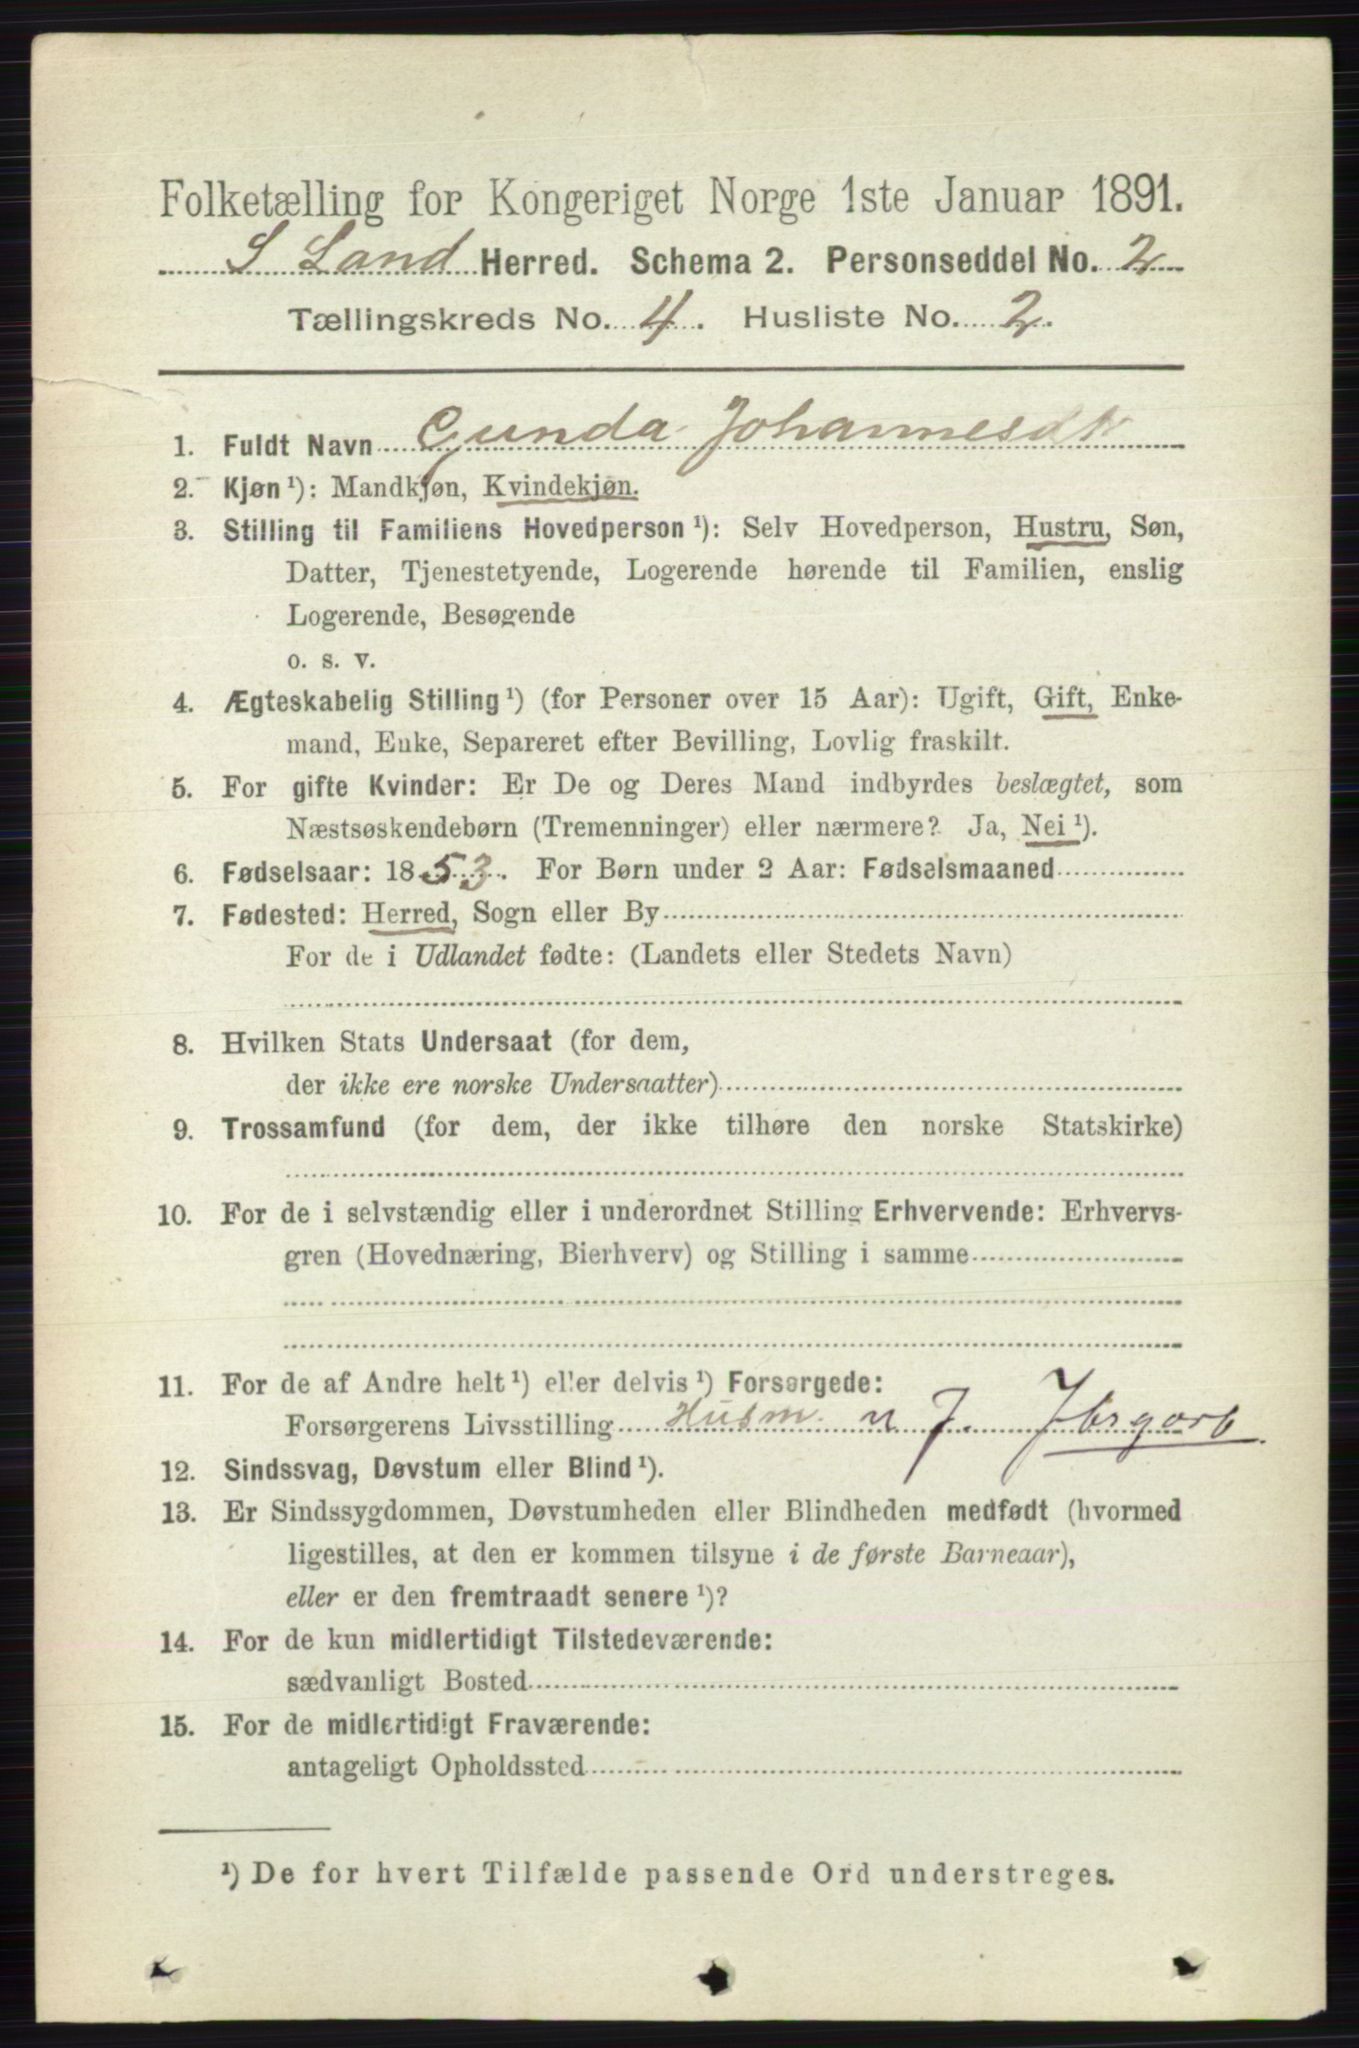 Folketælling for Kongeriget Norge 1ste Januar 1891.
S Land Herred. Schema 2. Personseddel No. 2
Tællingskreds No. 4. Husliste No. 2.
1. Fuldt Navn Gunda Johannesdtr
2. Kjøn ¹): Mandkjøn, Kvindekjøn.
3. Stilling til Familiens Hovedperson ¹): Selv Hovedperson, Hustru, Søn,
Datter, Tjenestetyende, Logerende hørende til Familien, enslig
Logerende, Besøgende
o. s. v.
4. Ægteskabelig Stilling ¹) (for Personer over 15 Aar): Ugift, Gift, Enke-
mand, Enke, Separeret efter Bevilling, Lovlig fraskilt.
5. For gifte Kvinder: Er De og Deres Mand indbyrdes beslægtet, som
Næstsøskendebørn (Tremenninger) eller nærmere? Ja, Nei ¹).
6. Fødselsaar: 1853. For Børn under 2 Aar: Fødselsmaaned
7. Fødested: Herred, Sogn eller By
For de i Udlandet fødte: (Landets eller Stedets Navn)
8. Hvilken Stats Undersaat (for dem,
der ikke ere norske Undersaatter)
9. Trossamfund (for dem, der ikke tilhøre den norske Statskirke)
10. For de i selvstændig eller i underordnet Stilling Erhvervende: Erhvervs-
gren (Hovednæring, Bierhverv) og Stilling i samme
11. For de af Andre helt ¹) eller delvis ¹) Forsørgede:
Forsørgerens Livsstilling Husm. m J.
12. Sindssvag, Døvstum eller Blind ¹).
13. Er Sindssygdommen, Døvstumheden eller Blindheden medfødt (hvormed
ligestilles, at den er kommen tilsyne i de første Barneaar),
eller er den fremtraadt senere ¹)?
14. For de kun midlertidigt Tilstedeværende:
sædvanligt Bosted
15. For de midlertidigt Fraværende:
antageligt Opholdssted
¹) De for hvert Tilfælde passende Ord understreges.